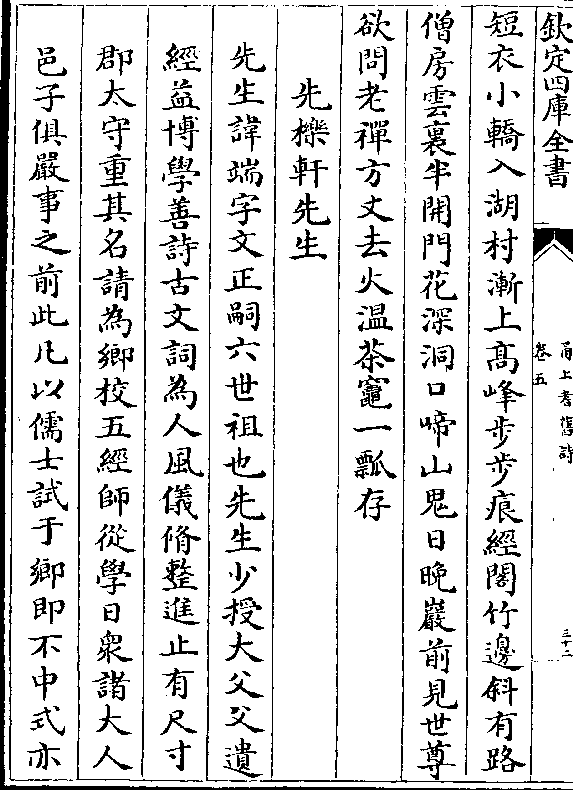 欽定四庫全書
甬上耆舊詩
卷五
三十二
短衣小轎入湖村漸上髙峰步步痕經閣竹邊斜有路
僧房雲裏半開門花深洞口啼山鬼日晚巖前見世尊
欲問老禪方丈去火温茶竈一瓢存
先櫟軒先生
先生諱端字文正嗣六世祖也先生少授大父父遺
經益博學善詩古文詞為人風儀脩整進止有尺寸
郡太守重其名請為鄉校五經師從學日衆諸大人
邑子俱嚴事之前此凡以儒士試于鄉即不中式亦